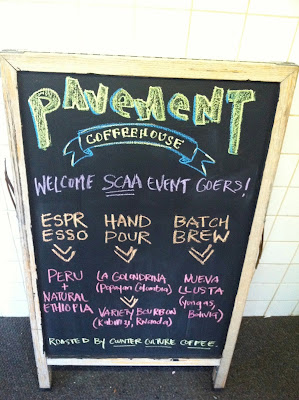 PAVEMENT
COFFEEHOUSE
WELCOME SCAA EVENT GOERS!
ESPR
ESSO
HAND
POUR
BATCH
BREW
PERU
+
NATURAL
ETHIOPIA
LA GOLONDRINA
(Popayan, Colombia)
VARIETY BOURBON
(Kabirizi, Rwanda)
NUEVA
LLUSTA
(Yungas,
Bolivia)
ROASTED BY COUNTER CULTURE COFFEE.